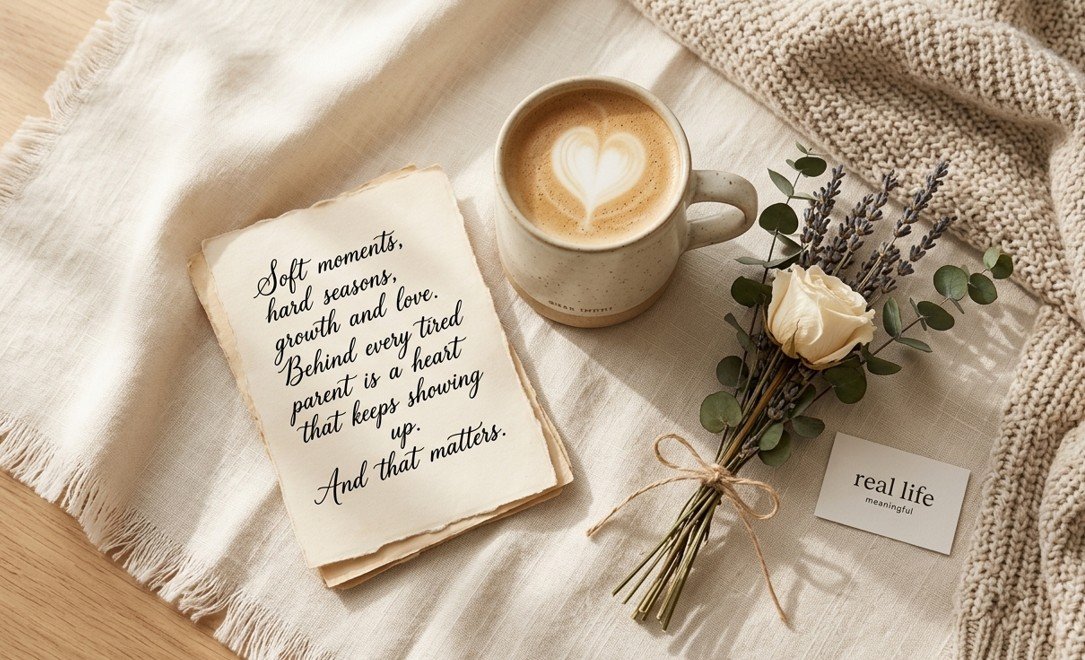 Soft moments,
hard seasons,
growth and love.
Behind every tired
parent is a heart
that keeps showing
up.
And that matters.
real life
meaningful